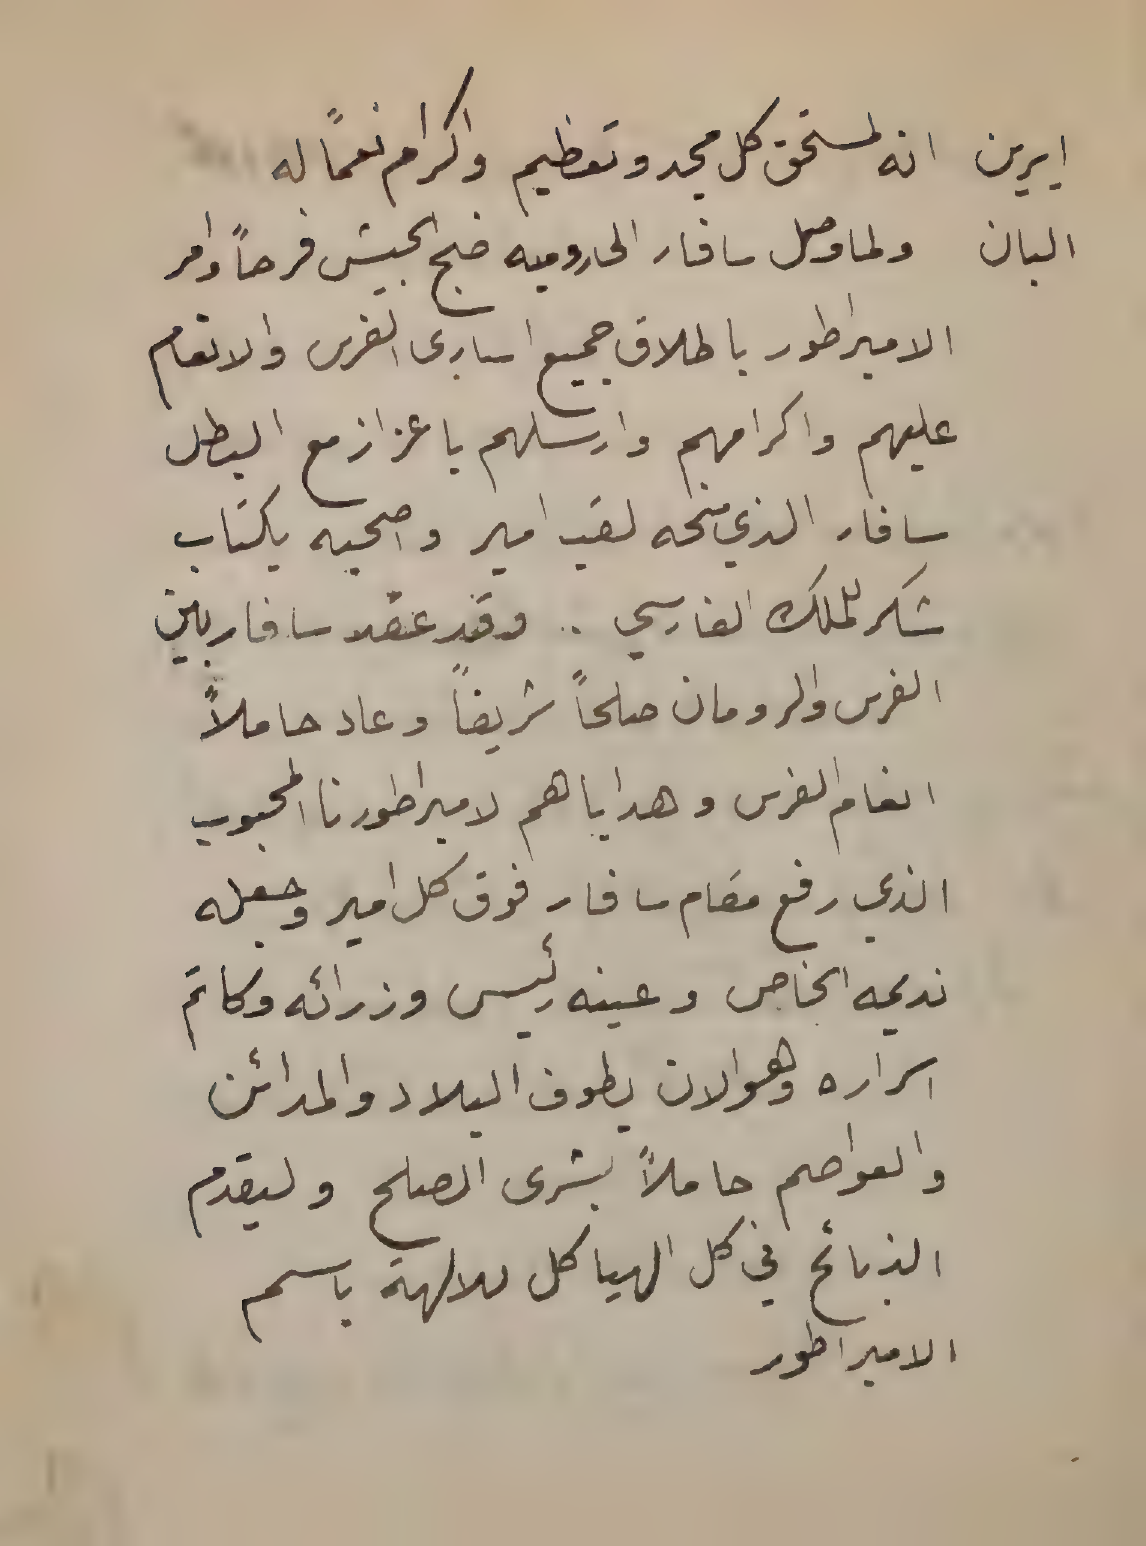 ايرين انه لمستحق كل مجد وتعظيم واكرام نعمًا له
البان ولما وصل سافار الى روميه ضج الجيش فرحاً وامر
الامبراطور باطلاق جميع اسارى الفرس والانعام
عليهم واكرامهم وارسلهم باعزاز مع البطل
سافار الذي منحه لقب امير واصحبه بكتاب
شكر للملك الفارسي .. وقد عقد سافار بين
الفرس والرومان صلحاً شريفاً وعاد حاملاً
انعام الفرس وهداياهم لامبراطورنا المحبوب
الذي رفع مقام سافار فوق كل امير وجعله
نديمه الخاص وعينه رئيس وزرائه وكاتم
اسراره وهو الان يطوف البلاد والمدائن
والعواصم حاملاً بشرى الصلح وليقدم
الذبائح في كل الهياكل للالهة باسم
الامبراطور